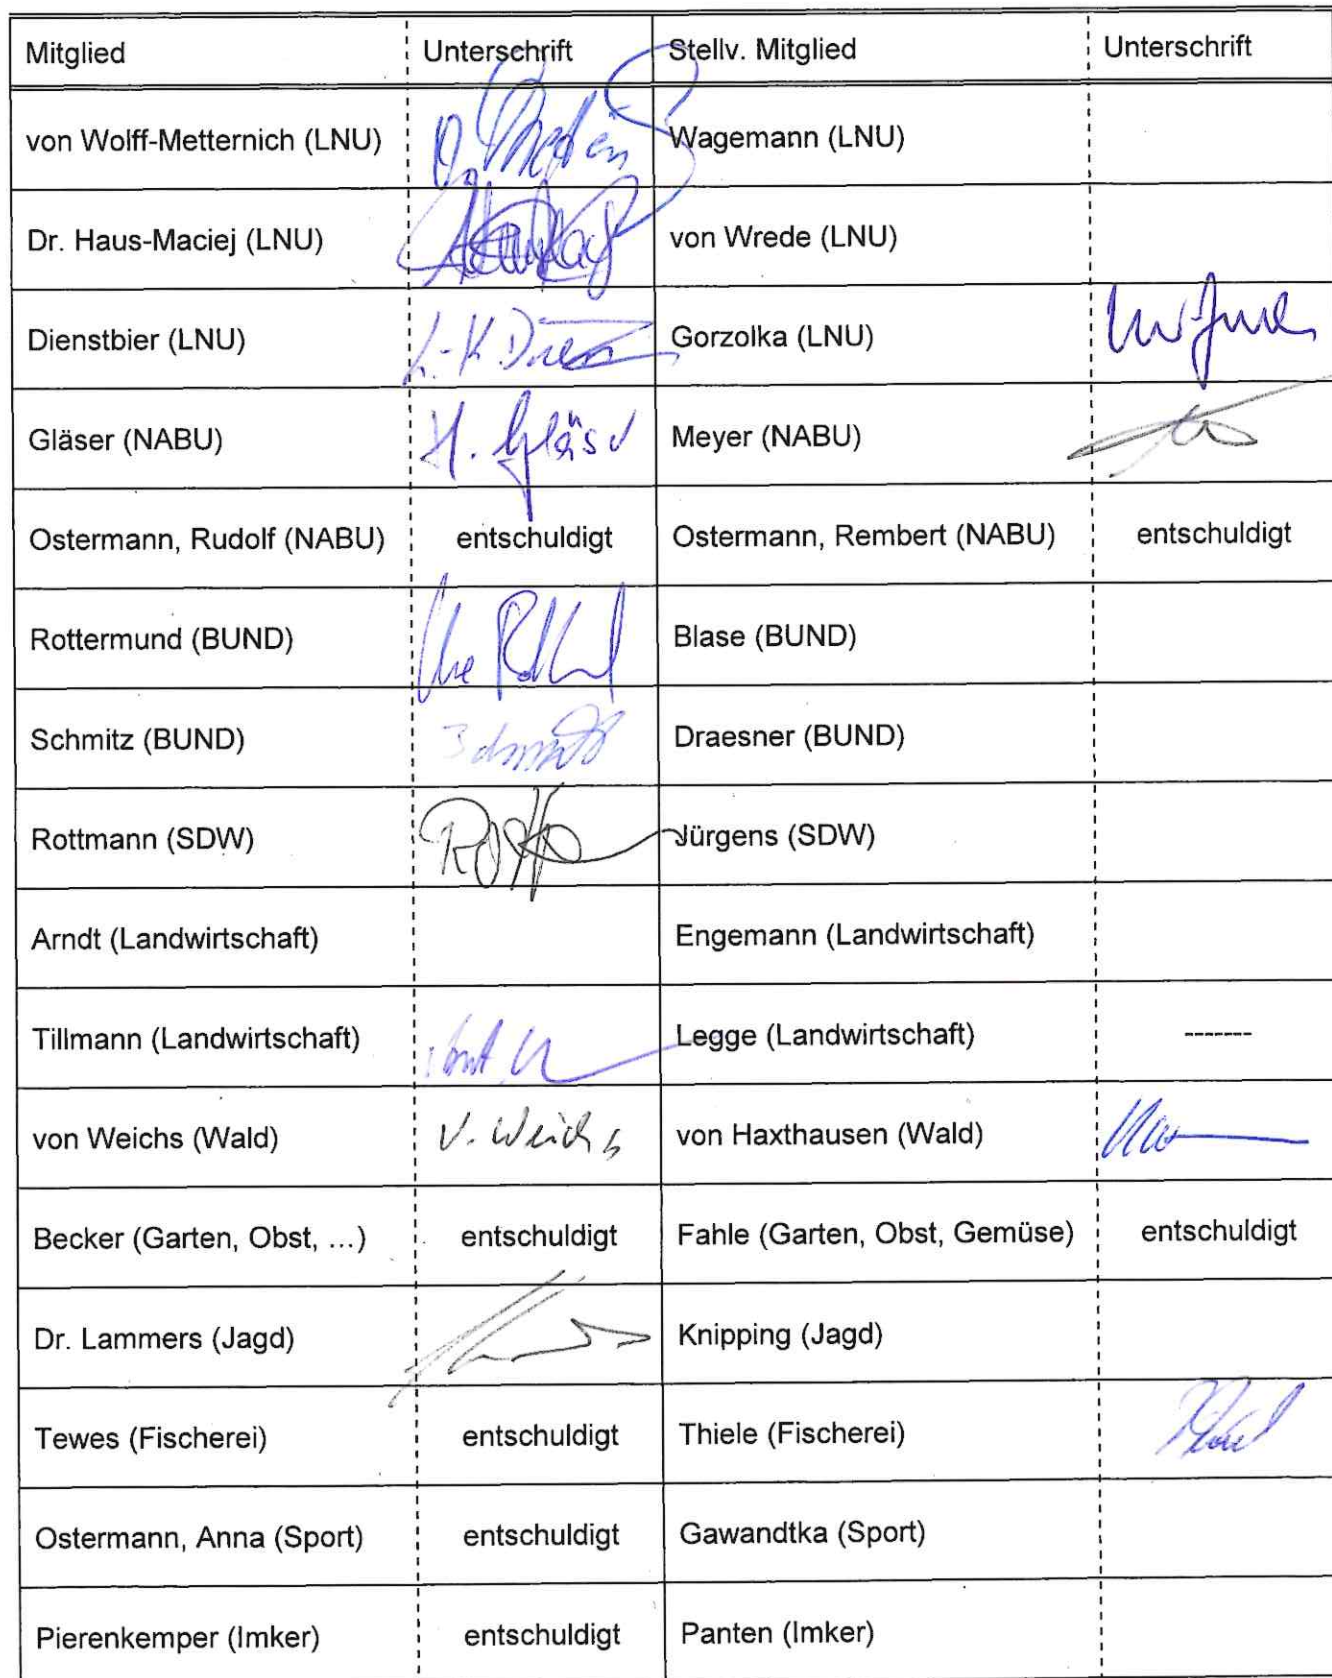 Mitglied Unterschrift Stellv. Mitglied Unterschrift
von Wolff-Metternich (LNU) Wagemann (LNU)
Dr. Haus-Maciej (LNU) von Wrede (LNU)
Dienstbier (LNU) Gorzolka (LNU)
Gläser (NABU) H. Gläser Meyer (NABU)
Ostermann, Rudolf (NABU) entschuldigt Ostermann, Rembert (NABU) entschuldigt
Rottermund (BUND) Blase (BUND)
Schmitz (BUND) Draesner (BUND)
Rottmann (SDW) Jürgens (SDW)
Arndt (Landwirtschaft) Engemann (Landwirtschaft)
Tillmann (Landwirtschaft) Legge (Landwirtschaft) -------
von Weichs (Wald) v. Weichs von Haxthausen (Wald)
Becker (Garten, Obst, ...) entschuldigt Fahle (Garten, Obst, Gemüse) entschuldigt
Dr. Lammers (Jagd) Knipping (Jagd)
Tewes (Fischerei) entschuldigt Thiele (Fischerei)
Ostermann, Anna (Sport) entschuldigt Gawandtka (Sport)
Pierenkemper (Imker) entschuldigt Panten (Imker)